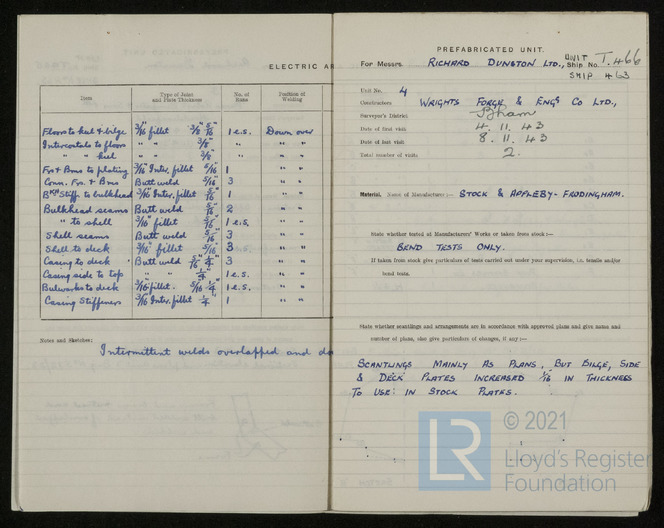 ELECTRIC AR
Item Type of Joint and Plate Thickness No. of Runs Position of Welding
Floors to keel & bilge 3/16" fillet 3/8" 5/16" 1 e.s. Down over
Intercostals to floors " " 3/8" " " "
" " keel " " 3/8" " " "
Frs & Bms to plating 3/16" Inter. fillet 5/16" 1 " "
Conn. Frs. & Bms Butt weld 5/16" 3 " "
Bkhd Stiff. to bulkhead 3/16" Inter. fillet 5/16" 1 " "
Bulkhead seams Butt weld 5/16" 2 " "
" to shell 3/16" fillet 5/16" 1 e.s. " "
Shell seams Butt weld 5/16" 3 " "
Shell to deck 3/16" fillet 5/16" 3 " "
Casing to deck Butt weld 5/16" 1/4" 3 " "
Casing side to top " " 1/4" 1 e.s. " "
Bulwarks to deck 3/16 fillet. 5/16 1/4" 1 e.s. " "
Casing Stiffeners 3/16 Inter. fillet 1/4" 1 " "
Notes and Sketches:
Intermittent welds overlapped and do
PREFABRICATED UNIT.
For Messrs. RICHARD DUNSTON LTD., UNIT Ship No. T.466
SHIP 463
Unit No. 4
Constructors WRIGHTS FORGE & ENGG Co LTD.,
Surveyor's District B'ham
Date of first visit 4. 11. 43
Date of last visit 8. 11. 43
Total number of visits 2.
Material. Name of Manufacturer :— STOCK & APPLEBY-FRODINGHAM.
State whether tested at Manufacturers' Works or taken from stock :—
BEND TESTS ONLY.
If taken from stock give particulars of tests carried out under your supervision, i.e. tensile and/or
bend tests.
State whether scantlings and arrangements are in accordance with approved plans and give name and
number of plans, also give particulars of changes, if any :—
SCANTLINGS MAINLY AS PLANS, BUT BILGE, SIDE
& DECK PLATES INCREASED 1/16 IN THICKNESS
TO USE: IN STOCK PLATES.
© 2021
LR
Lloyd's Register
Foundation